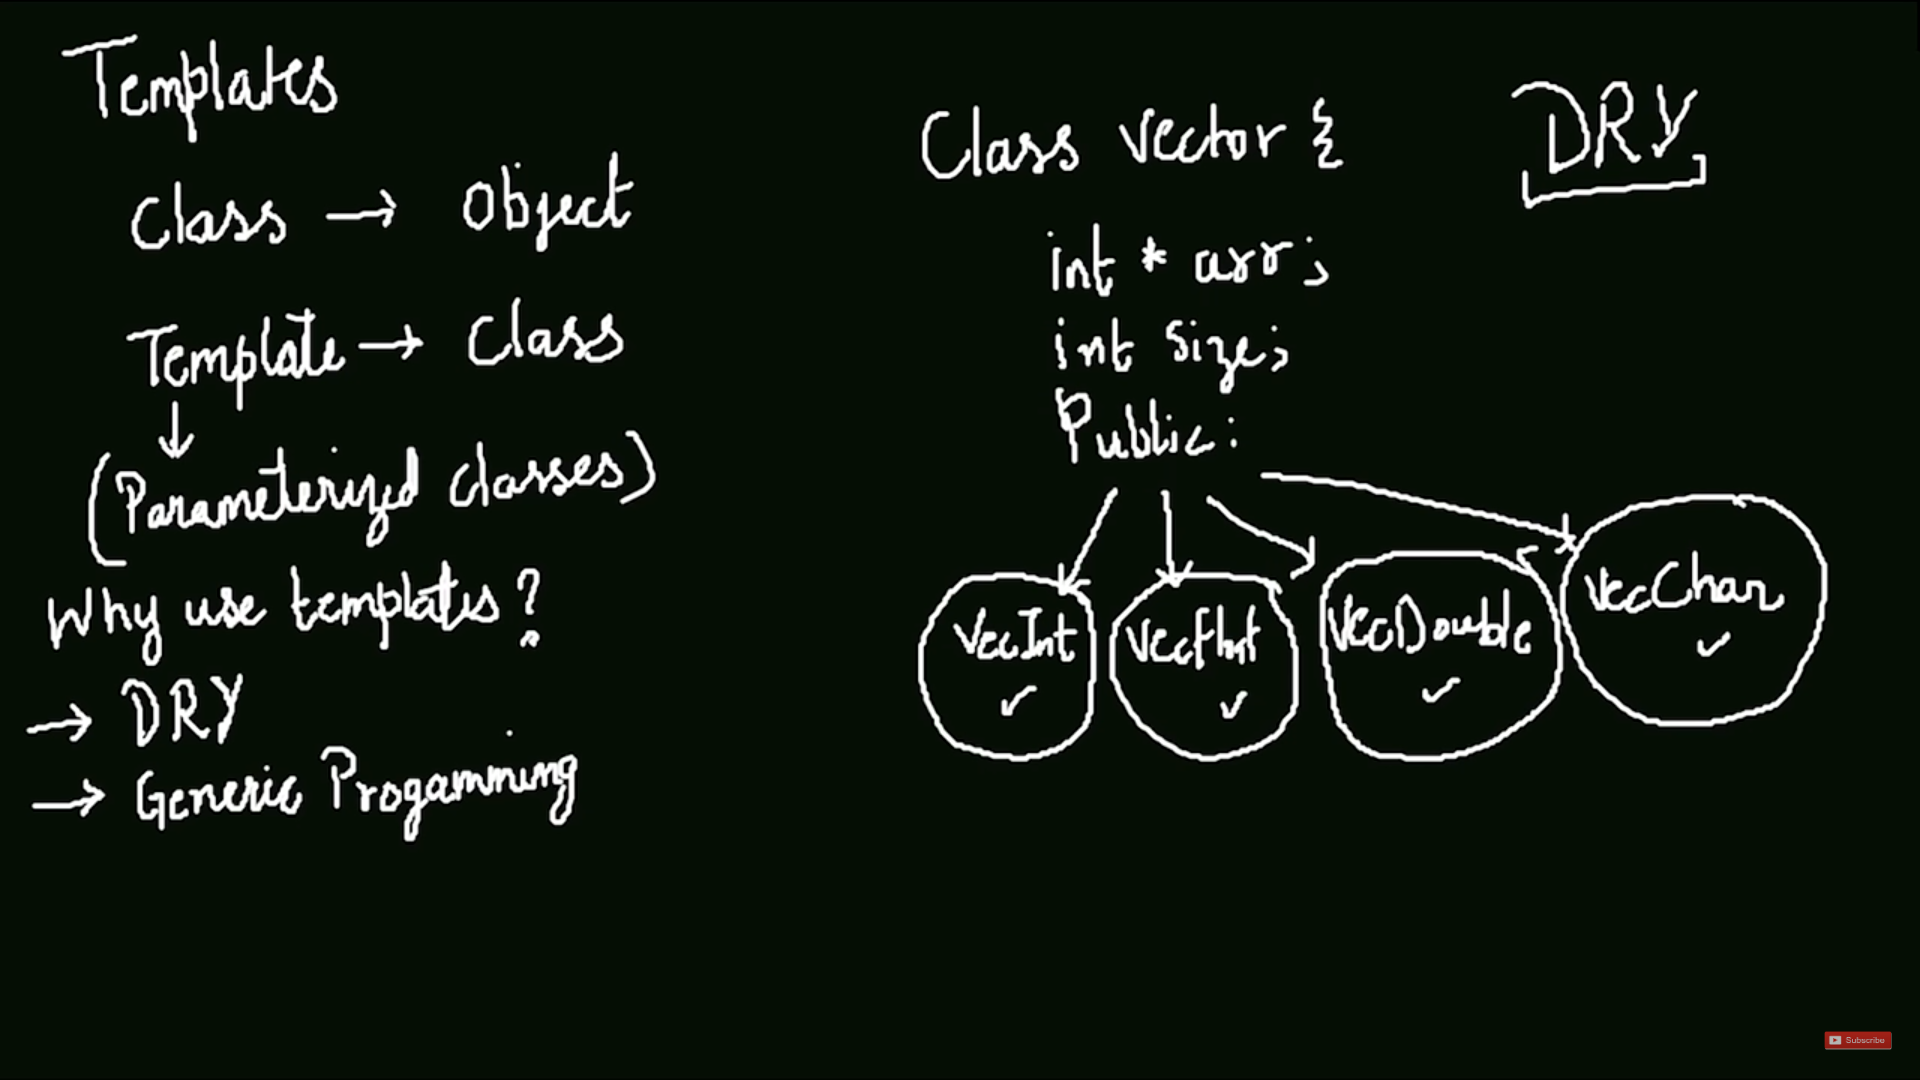 Templates
Class → Object
Template → Class
↓
(Parameterized classes)
Why use templates?
→ DRY
→ Generic Progamming
Class vector {
int * arr;
int size;
Public:
DRY
VecInt ✓
VecFloat ✓
VecDouble ✓
VecChar ✓
Subscribe